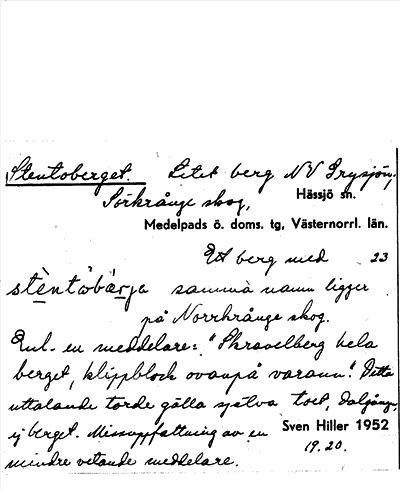 Stentoberget. Litet berg NV Grysjön,
Sörkrånge skog, Hässjö sn.
Medelpads ö. doms. tg, Västernorrl. län.
Ett berg med 23
stèntòbár̲ja samma namn ligger
på Norrkrånge skog.
Enl. en meddelare: "Skravelberg hela
berget, klippblock ovanpå varann". Detta
uttalande torde gälla själva toet, dalgången,
ej berget. Missuppfattning av en Sven Hiller 1952
mindre vetande meddelare. 19.20.